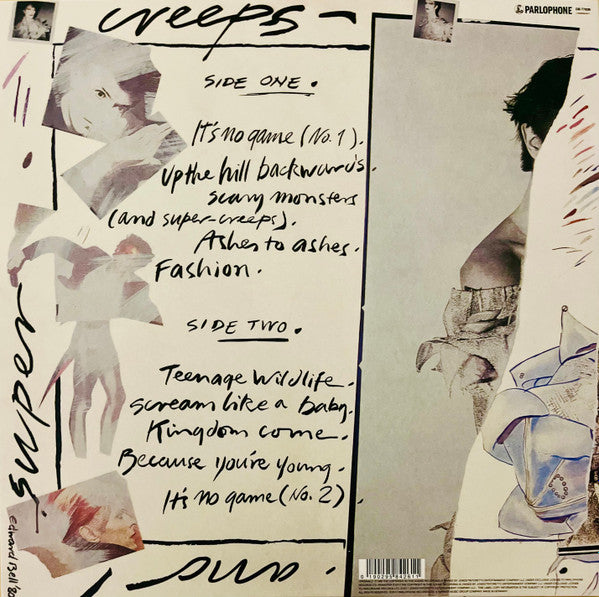 creeps -
PARLOPHONE
SIDE ONE.
It's no game (No. 1).
Up the hill backwards.
scary monsters
(and super-creeps).
Ashes to ashes.
Fashion.
SIDE TWO.
Teenage Wildlife.
scream like a baby.
Kingdom come.
Because you're young.
It's no game (No. 2).
super
Edward Bell '80
and
0 190295 842611